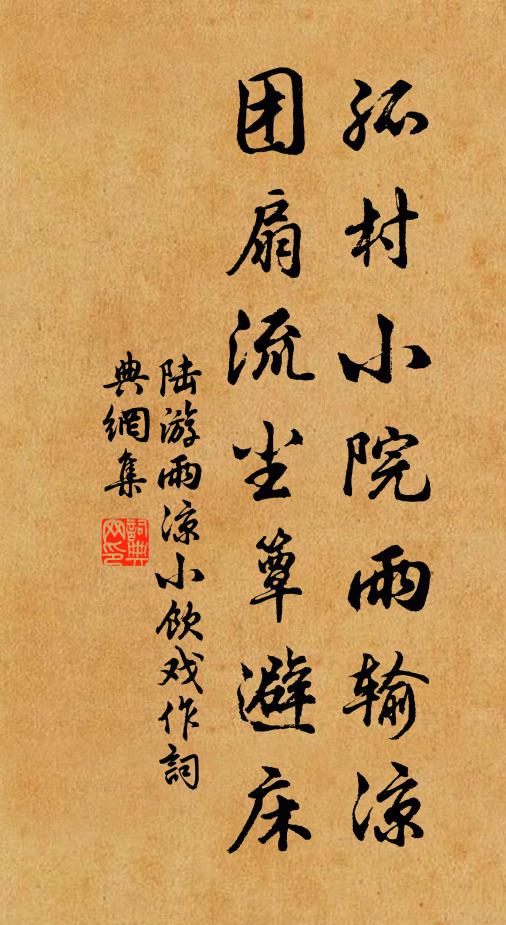 孤村小院雨输凉
团扇流尘簟避床
陆游雨凉小飲戏作詞
典網集
詞典网印